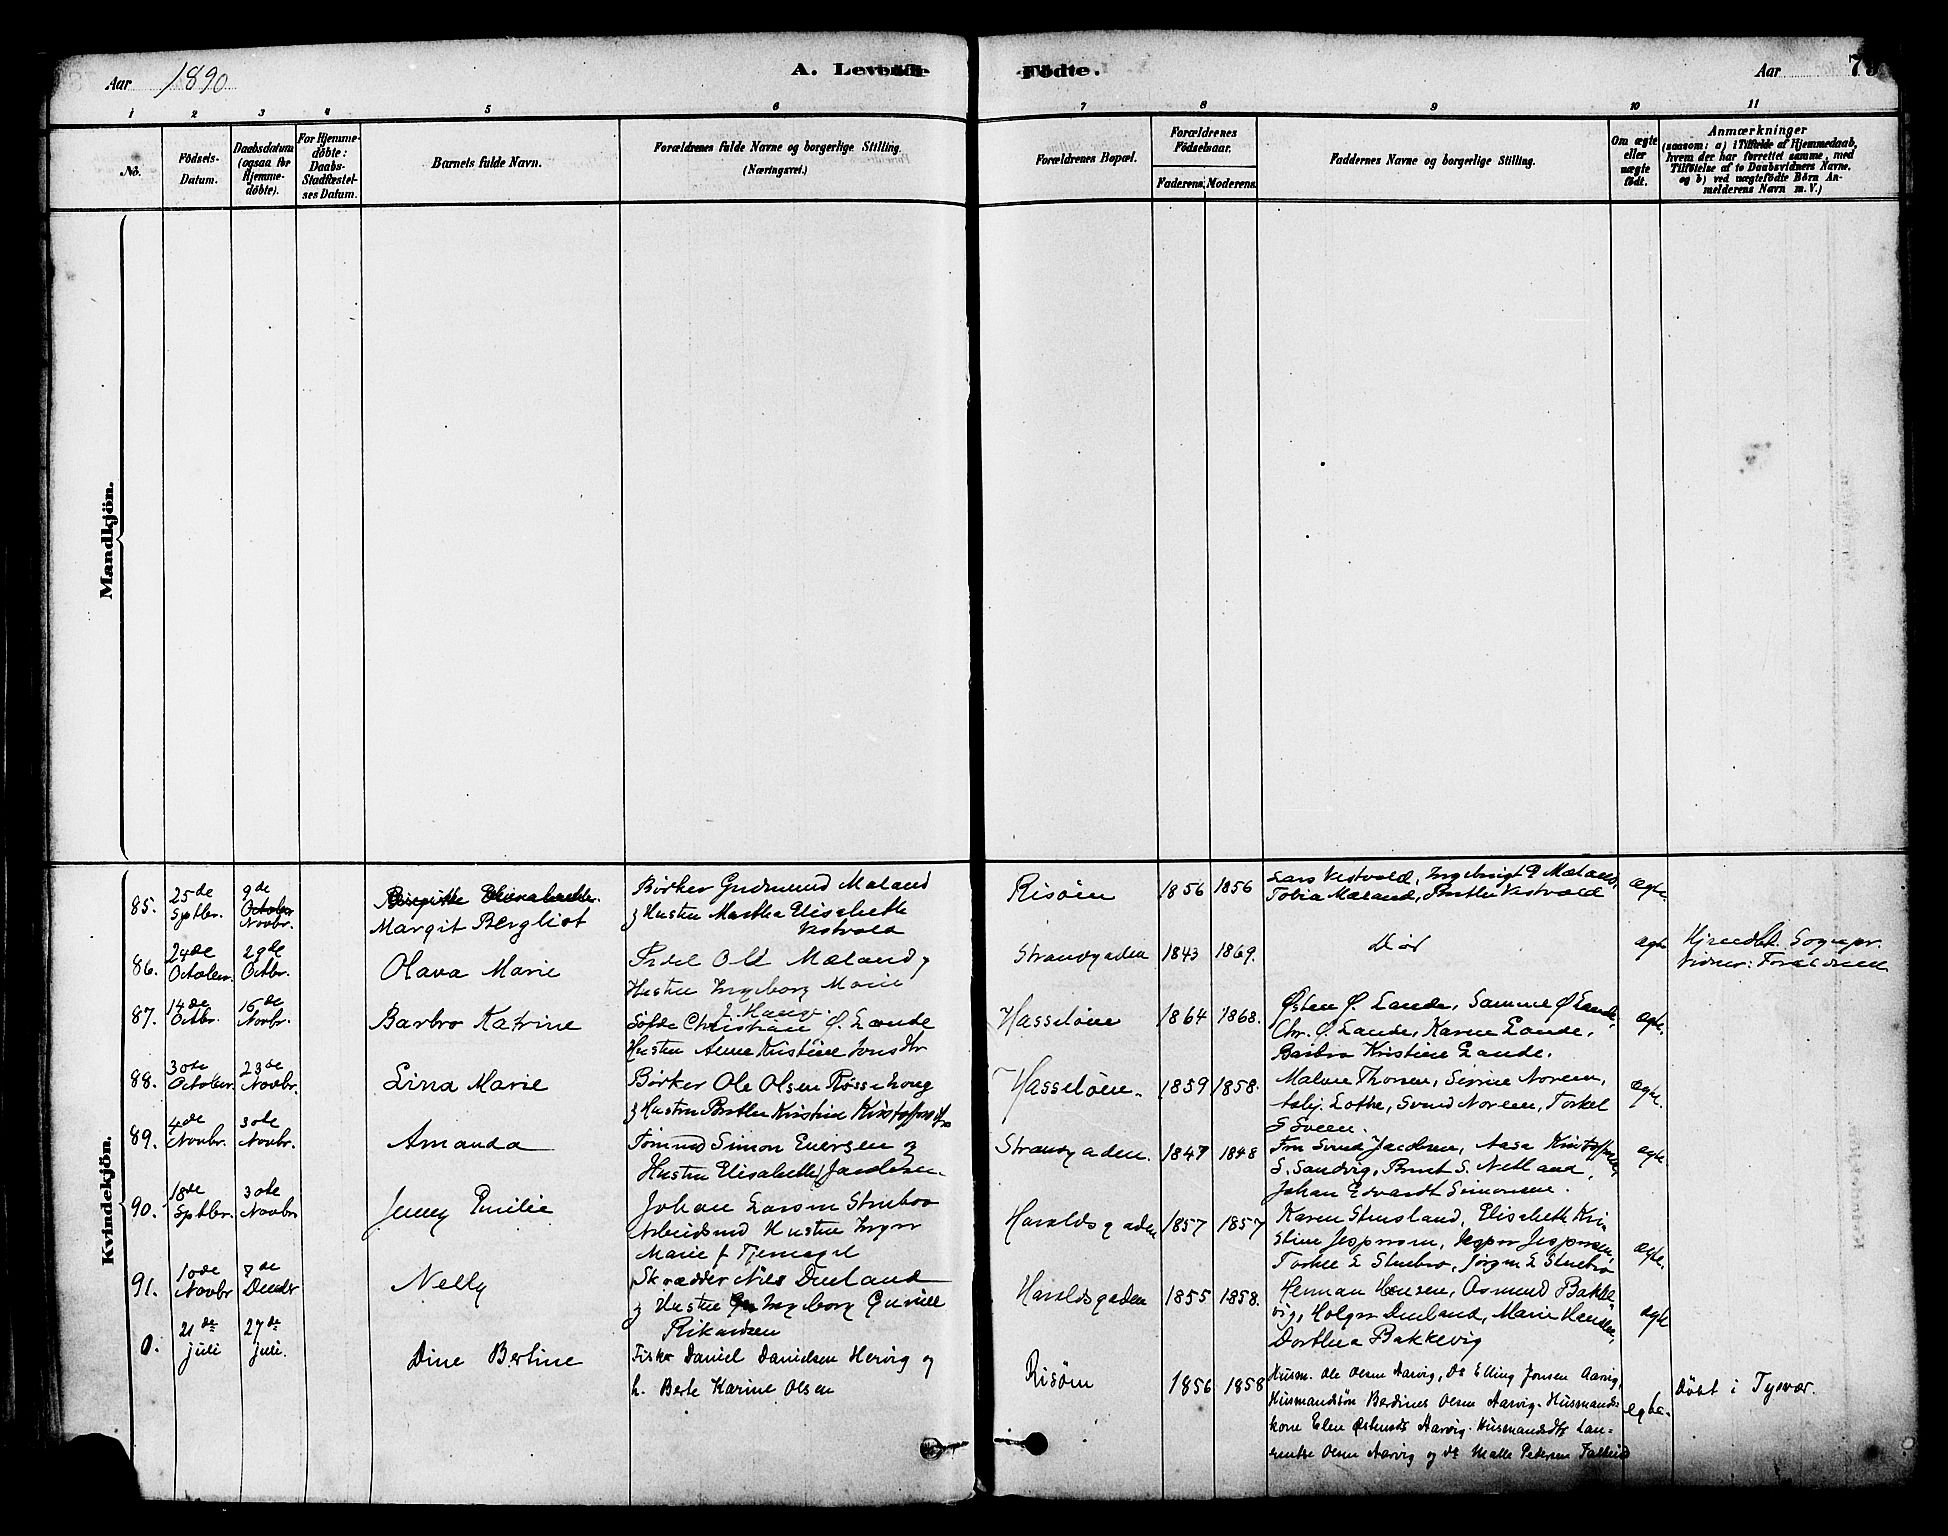 Aar 1890
A. Levende Fødte.
Aar
1 2 3 4 5 6 7 8 9 10 11
No.
Födsels-
Datum.
Daabsdatum
(ogsaa for
Hjemme-
döbte).
For Hjemme-
döbte:
Daabs-
Stadfæstel-
ses Datum.
Barnets fulde Navn.
Forældrenes fulde Navne og borgerlige Stilling.
(Næringsvei.)
Forældrenes Bopæl.
Forældrenes
Födselsaar.
Faderens. Moderens.
Faddernes Navne og borgerlige Stilling.
Om ægte
eller
uægte
födt.
Anmærkninger
(saasom: a) i Tilfælde af Hjemmedaab,
hvem der har forrettet samme, med
Tilföielse af to Daabsvidners Navne,
og b) ved uægtefödte Börn An-
melderens Navn m. V.)
Mandkjön.
Kvindekjön.
85.
25de
Sptbr.
9de
October
Novbr.
Margit Bergliot
Børker Gudmund Mæland
og Hustru Martha Elisabeth
Vestvold
Risøen
1856 1856
Lars Vestvold, Ingebrigt P Mæland,
Tobia Mæland, Berthe Vestvold
ægte.
86.
24de
October.
29de
Octbr.
Olava Marie
Ole Mæland og
Hustru Ingeborg Marie
J. Haug.
Strandgaden
1843 1869.
Død
ægte
Hjemdbt. Sognepr.
Vidner: Forældrene
87.
14de
Octbr.
16de
Novbr.
Barbro Katrine
Christian Ø. Lande
Hustru Anne Kristine Jonsdtr
Hasseløen
1864 1868.
Østen Ø. Lande, Samme Ø Lande,
Chr. Ø. Lande, Karen Lande,
Barbra Kristine Lande.
ægte.
88.
30de
October.
23de
Novbr.
Lina Marie
Børker Ole Olsen Røssehoug
og Hustru Berthe Kristine Kristoffersdtr
Hasseløen.
1859 1858.
Malene Thorsen, Sirine Noreen,
Asbj. Lothe, Svend Noreen, Torkel
G Sveen.
ægte.
89.
4de
Novbr.
30de
Novbr.
Amanda
Tømmd Simon Eversen og
Hustru Elisabeth Jacobsen.
Strandgaden.
1847 1848
Fru Jacobsen, Aasa
S. Sandvig, Bernt S. Netland,
Johan Edvardt Simonsen.
ægte.
90.
18de
Sptbr.
30de
Novbr
Jenny Emilie
Johan Larsen Stuebro
Arbeidsmd Hustru Inger
Marie f Tjernagel
Haraldsgaden
1857 1857
Karen Stensland, Elisabeth Kri-
stine Jespersen, Jesper Jespersen,
Torkel L Stuebro, Jørgen L Stuebro
ægte.
91.
10de
Novbr
7de
Decbr
Nelly
Skrædder Nils Dueland
og Hustru Ingeborg Gurine
Rikardsen
Haraldsgaden
1855 1858.
Herman Hansen, Asmund Bakke-
vig, Holger Dueland, Marie Hansen,
Dorthea Bakkevig
ægte
0.
21de
juli
27de
juli.
Dine Bertine
Fisker Daniel Danielsen Hervig og
h. Berte Karine Olsen
Risøen
1856 1858
Husm. Ole Olsen Aarvig, Do Elling Jonsen Aarvig,
Husmandssøn Berdines Olsen Aarvig. Husmands
kone Elen Østensdtr Aarvig. Husmandsdtr Lau-
rentse Olsen Aarvig og do Malle Pedersen
egte.
Døbt i Tysvær.